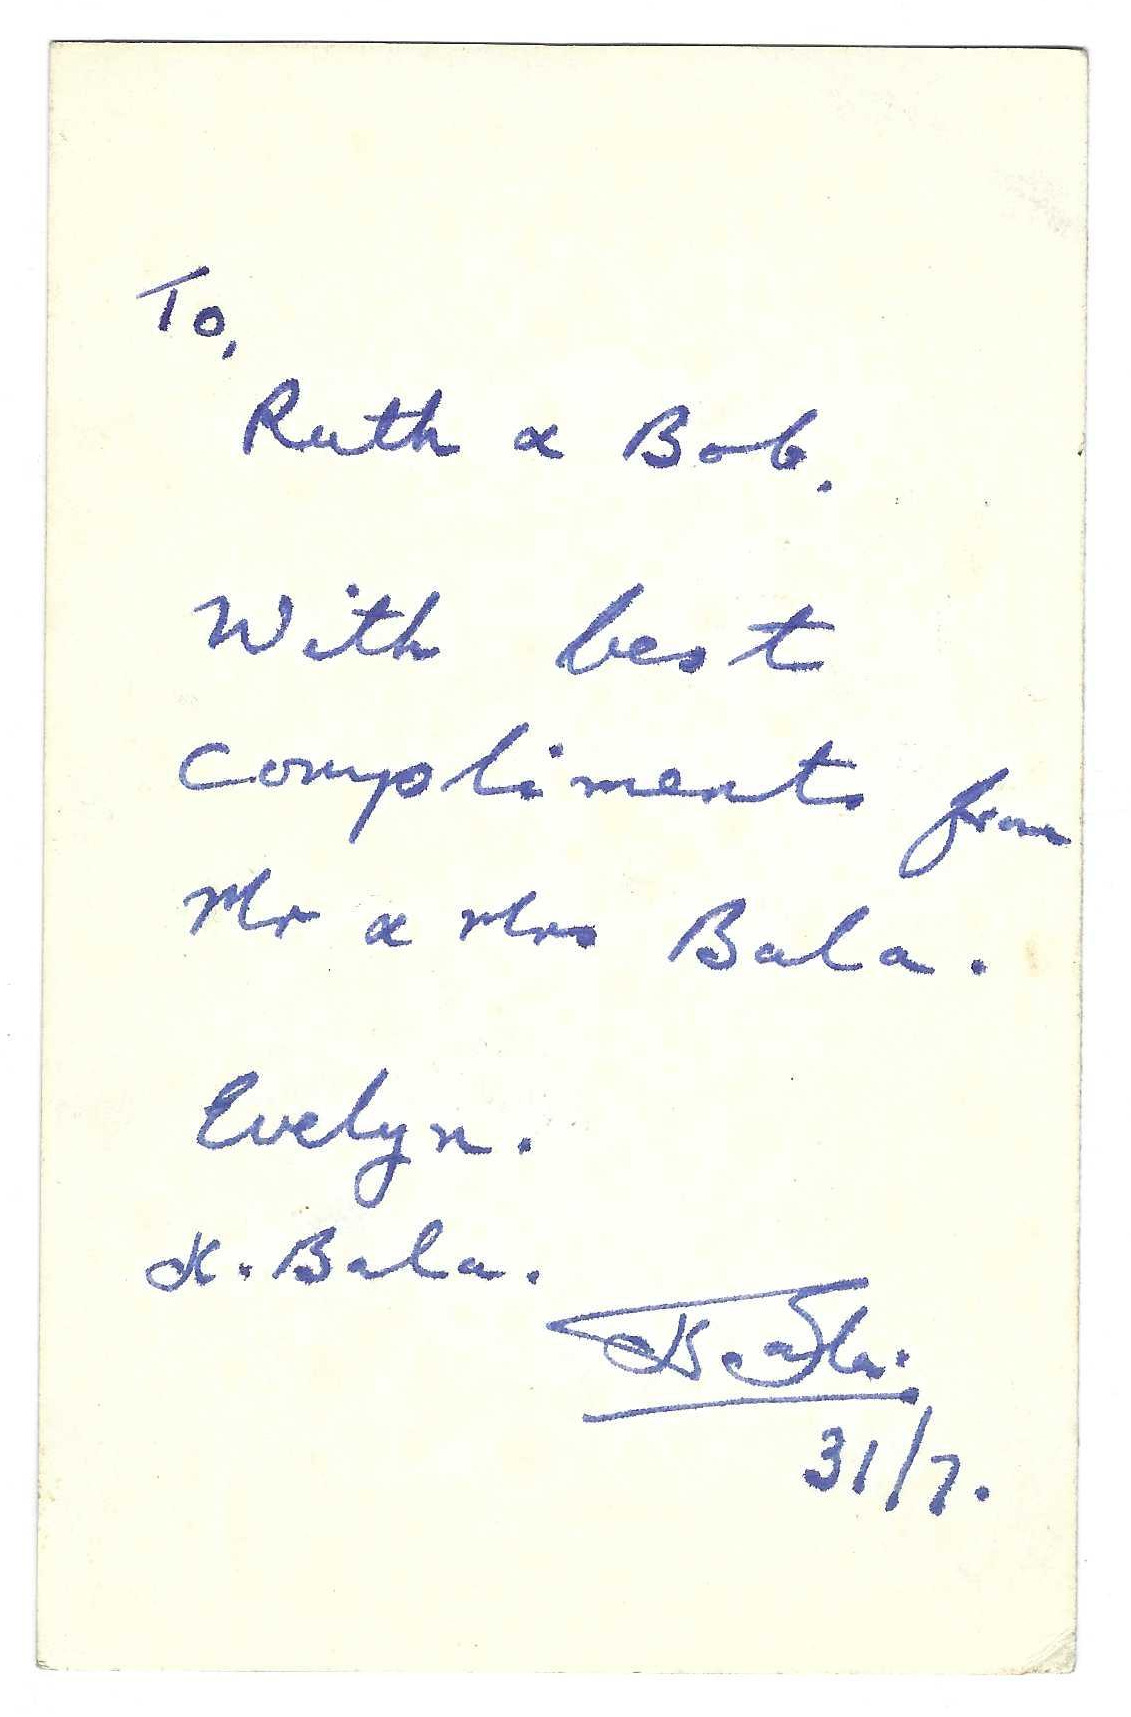 To,
Ruth & Bob.
With best
compliments from
Mr & Mrs Bala.
Evelyn.
K. Bala.
31/7.